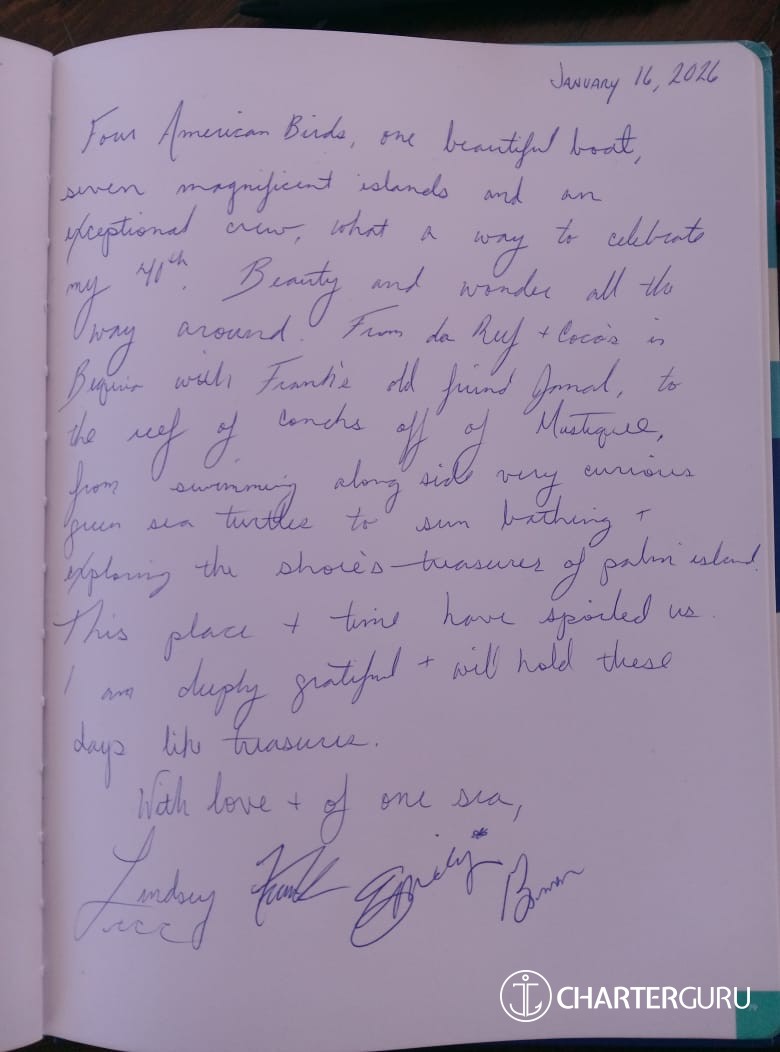 January 16, 2026
Four American Birds, one beautiful boat,
seven magnificent islands and an
exceptional crew, what a way to celebrate
my 40th. Beauty and wonder all the
way around. From da Reef + Coco's in
Bequia with Frank's old friend Jamal, to
the reef of conchs off of Mustique,
from swimming along side very curious
green sea turtles to sun bathing +
exploring the shore's treasures of palm island.
This place + time have spoiled us.
I am deeply grateful + will hold these
days like treasures.
With love + of one sea,
Lindsey Frank Emily
CHARTERGURU